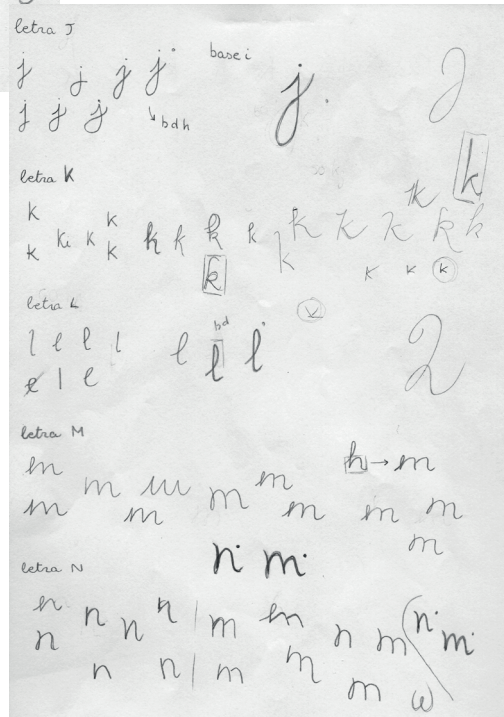 letra J
base i
j j j j
j j j
bdh
j
letra K
k k k k k k k k k k k k k k k
k k k k k k k
letra L
l l l l l
bd
l l l
l l l
letra M
h → m
m m m m m m m m m m
m m
n m
letra N
n n n n m m n m n m
n n n m m m w